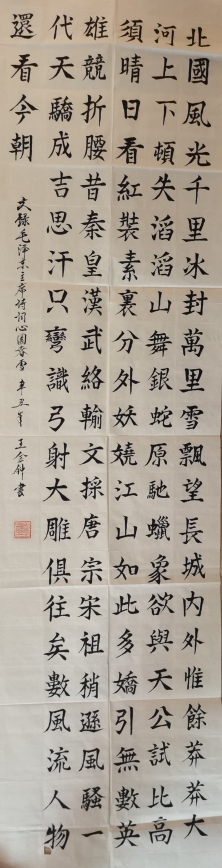 北國風光千里冰封萬里雪飄望長城內外惟餘莽莽大
河上下頓失滔滔山舞銀蛇原馳蠟象欲與天公試比高
須晴日看紅裝素裹分外妖嬈江山如此多嬌引無數英
雄競折腰昔秦皇漢武絡輸文採唐宗宋祖稍遜風騷一
代天驕成吉思汗只彎識弓射大雕俱往矣數風流人物
還看今朝
文錄毛澤东主席詩詞心園春雪 辛丑年 王金钟書